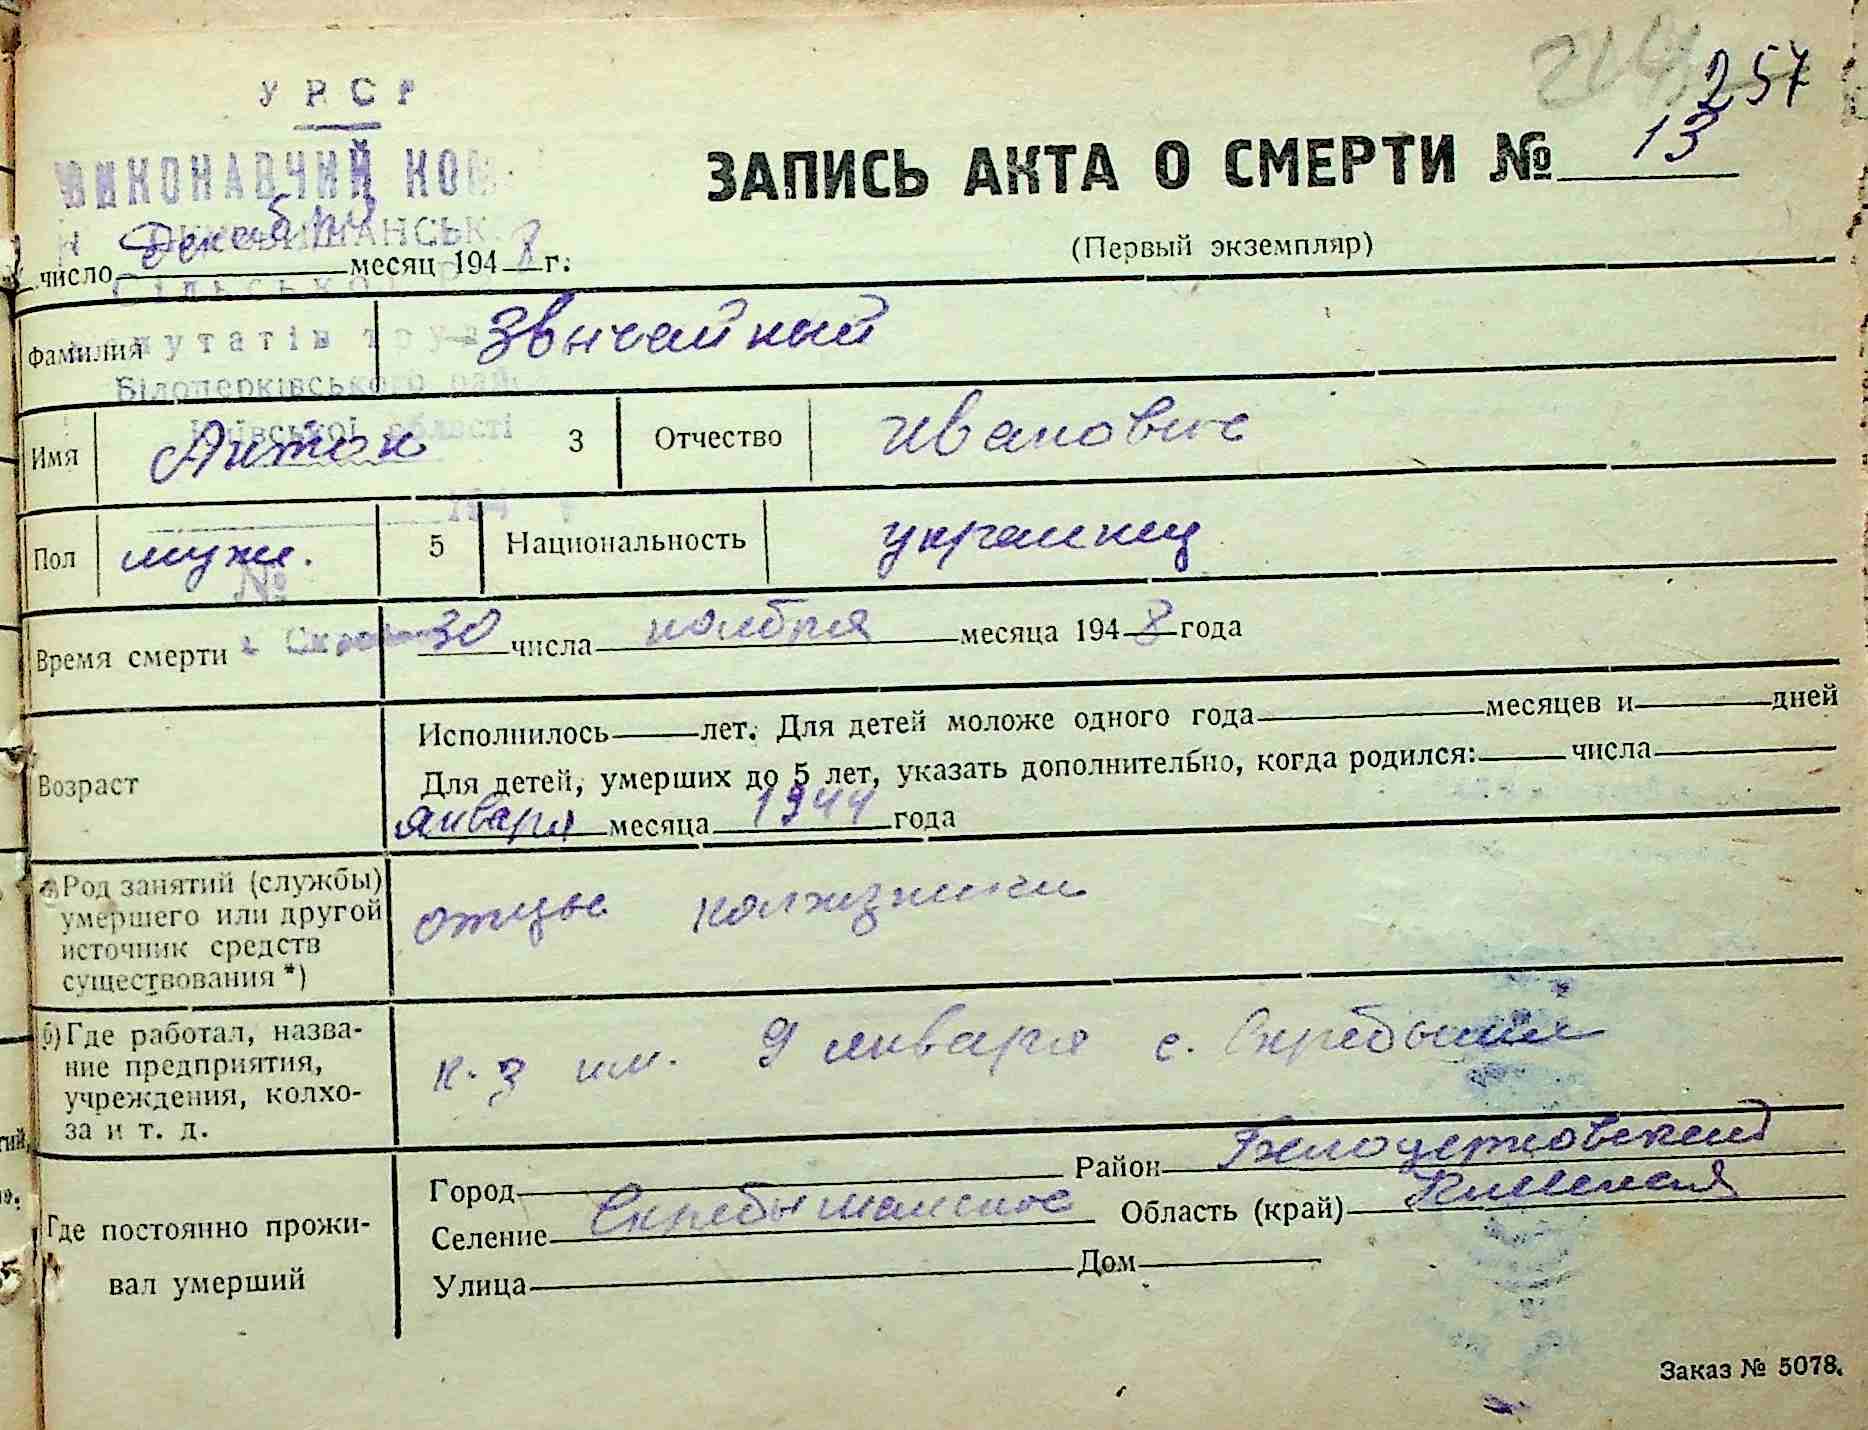 257
УРСР
ЗАПИСЬ АКТА О СМЕРТИ № 13
ВИКОНАВЧИЙ КОМ
(Первый экземпляр)
число Декабря месяц 1948 г.
Сільської
Фамилия Звычайный
депутатів тру
Білоцерківського рай
Київської області
Имя Антон 3 Отчество Иванович
194
Пол муж. 5 Национальность украинец
№
Время смерти 30 числа ноября месяца 1948 года
Исполнилось лет. Для детей моложе одного года месяцев и дней
Возраст
Для детей, умерших до 5 лет, указать дополнительно, когда родился: числа
января месяца 1944 года
а) Род занятий (службы)
умершего или другой
источник средств
существования *)
отцы колхозники
б) Где работал, назва-
ние предприятия,
учреждения, колхо-
за и т. д.
к-з им. 9 января с. Скребыши
Город Район Белоцерковский
Где постоянно прожи-
вал умерший
Селение Скребышанское Область (край) Киевская
Улица Дом
Заказ № 5078.